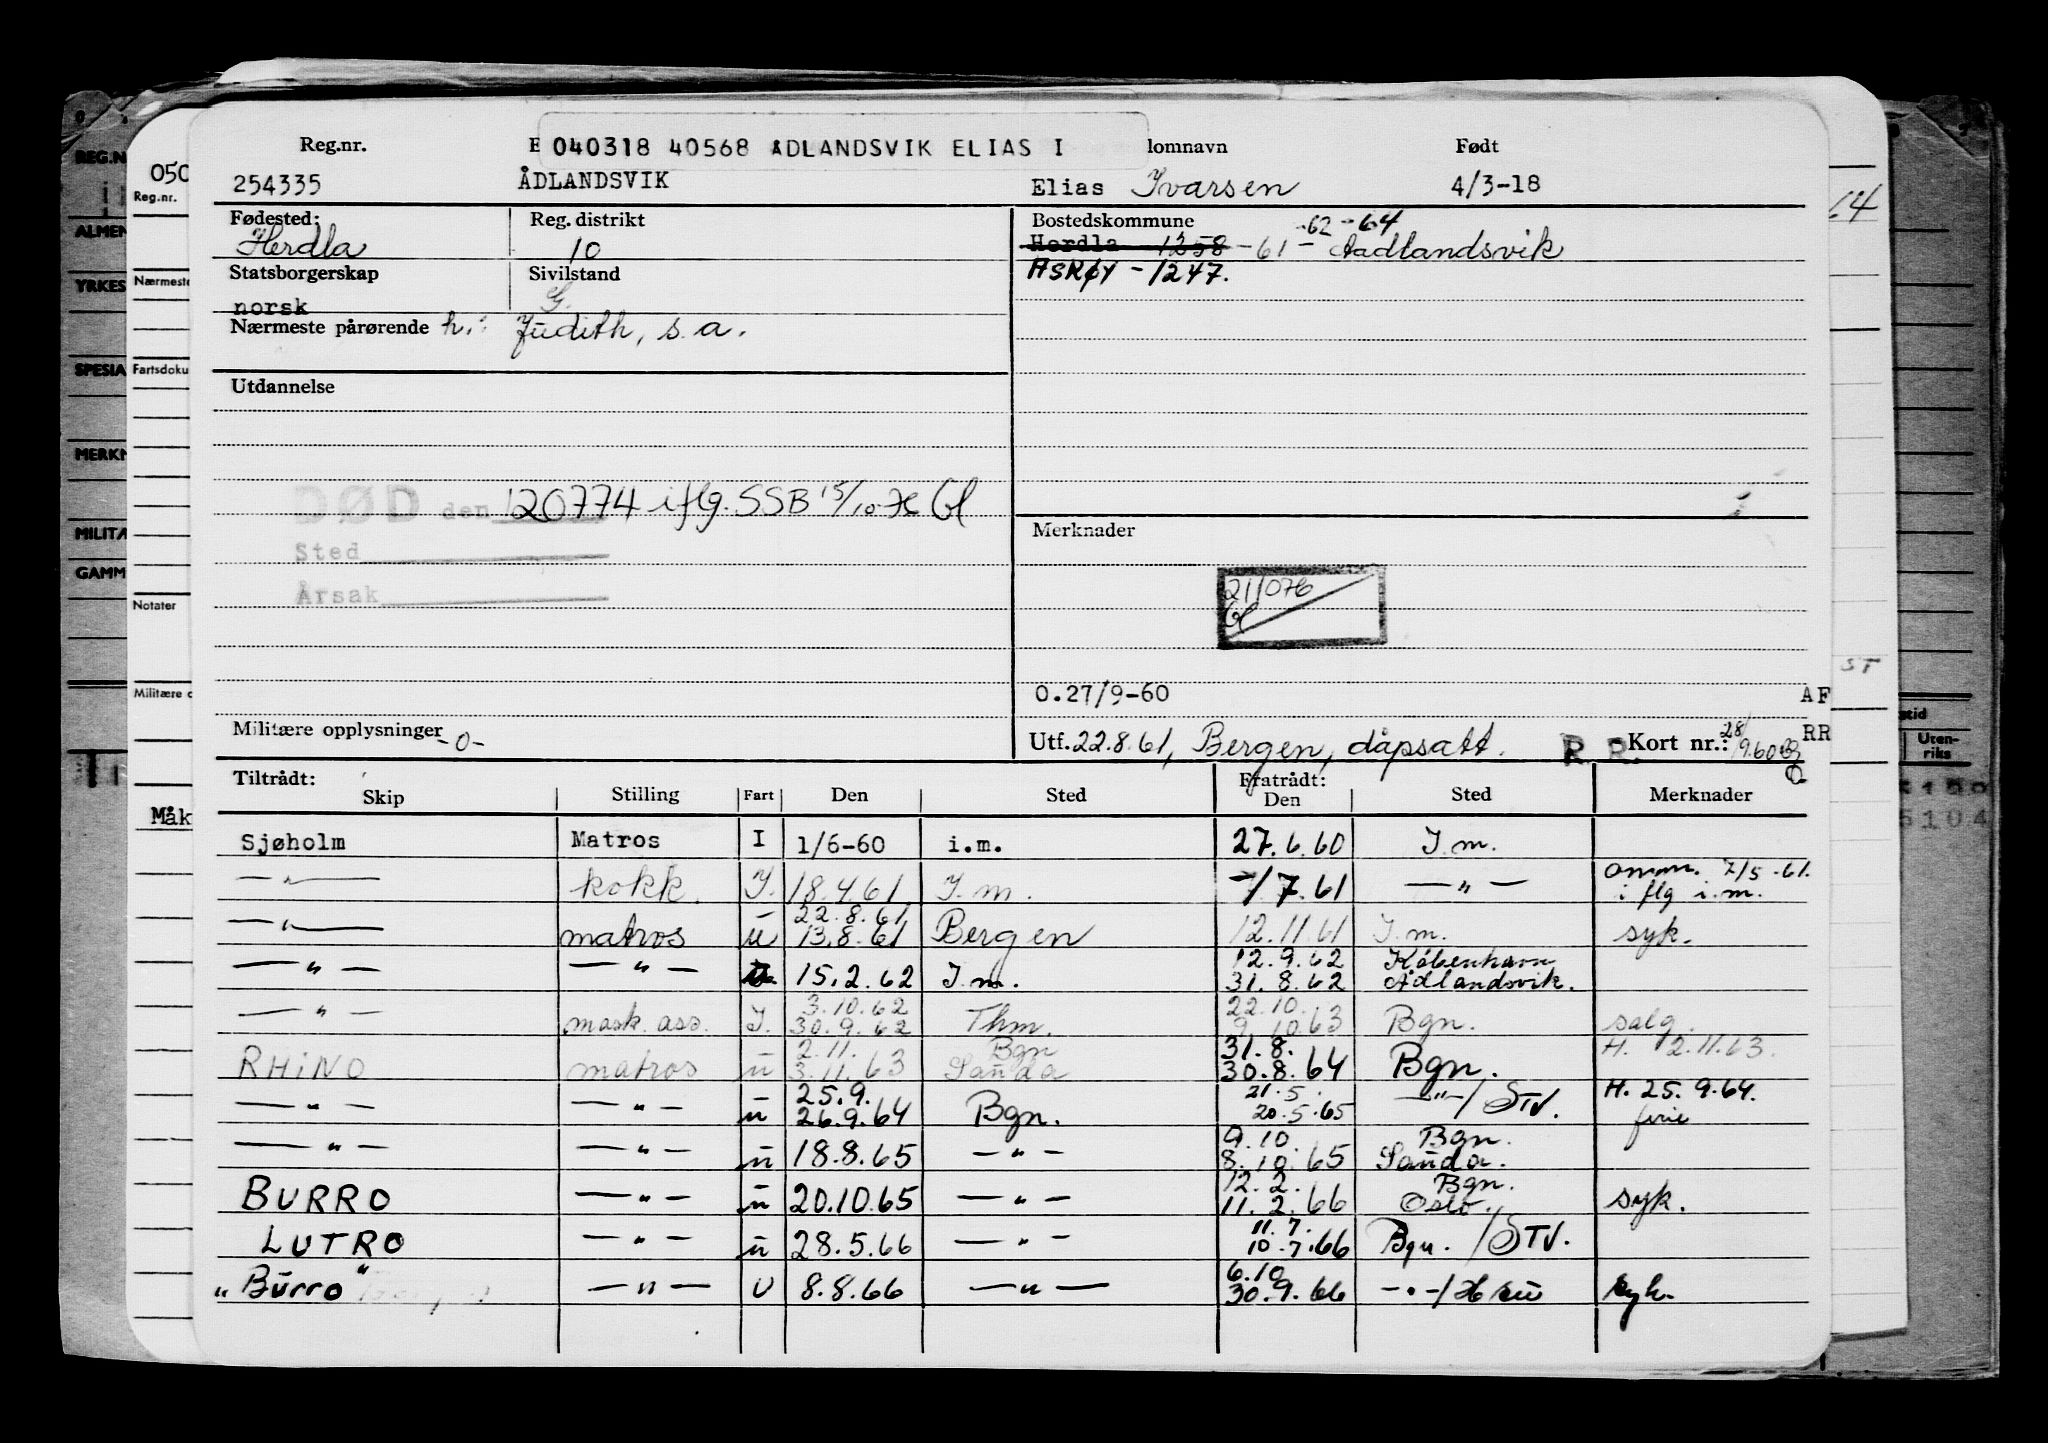 040318 40568 ADLANDSVIK ELIAS I
Reg.nr. E lomnavn Født
254335 ÅDLANDSVIK Elias Ivarsen 4/3-18
Fødested: Reg. distrikt Bostedskommune -62-64
Herdla 10 Herdla 1258 -61- Aadlandsvik
Statsborgerskap Sivilstand ASKØY - 1247.
norsk G.
Nærmeste pårørende h.: Judith, s.a.
Utdannelse
DØD den 120774 iflg. SSB 15/10-76 Gl
Merknader
Sted
Årsak
21/1076
Gl
0.27/9-60 AF
Militære opplysninger -0- Utf. 22.8.61, Bergen, dåpsatt. R R. Kort nr.: 28/9.60 RR
Tiltrådt: Fratrådt:
Skip Stilling Fart Den Sted Den Sted Merknader
Sjøholm Matros I 1/6-60 i.m. 27.6.60 I.m.
— " — kokk. I. 18.4.61. I.m. -/7.61 — " — anm. 7/5-61.
i flg i.m.
22.8.61
— " — matros u 13.8.61 Bergen 12.11.61 I.m. syk.
12.9.62 København
— " — — " — u. 15.2.62 I.m. 31.8.62 Ådlandsvik.
3.10.62 22.10.
— " — mask. ass. I. 30.9.62 Thm. 9.10.63 Bgn. salg.
2.11. Bgn 31.8. H. 2.11.63.
RHINO matros u 3.11.63 Sauda 30.8.64 Bgn.
25.9. 21.5. H. 25.9.64.
— " — — " — u 26.9.64 Bgn. 20.5.65 — " — / STV. ferie
9.10. Bgn.
— " — — " — u 18.8.65 — " — 8.10.65 Sauda.
12.2. Bgn.
BURRO — " — u 20.10.65 — " — 11.2.66 Oslo. syk.
11.7.
LUTRO — " — u 28.5.66 — " — 10.7.66 Bgn. / STV.
6.10
"Burro" — " — U 8.8.66 — " — 30.9.66 — " — / syk.
050
Reg.nr.
Nærmeste
Fartsdoku
Notater
Militære o
Måk
REG.N
ALMEN
YRKES
SPESIA
MERKN
MILITÆ
GAMM
64
ST
tid
Uten-
riks
5104